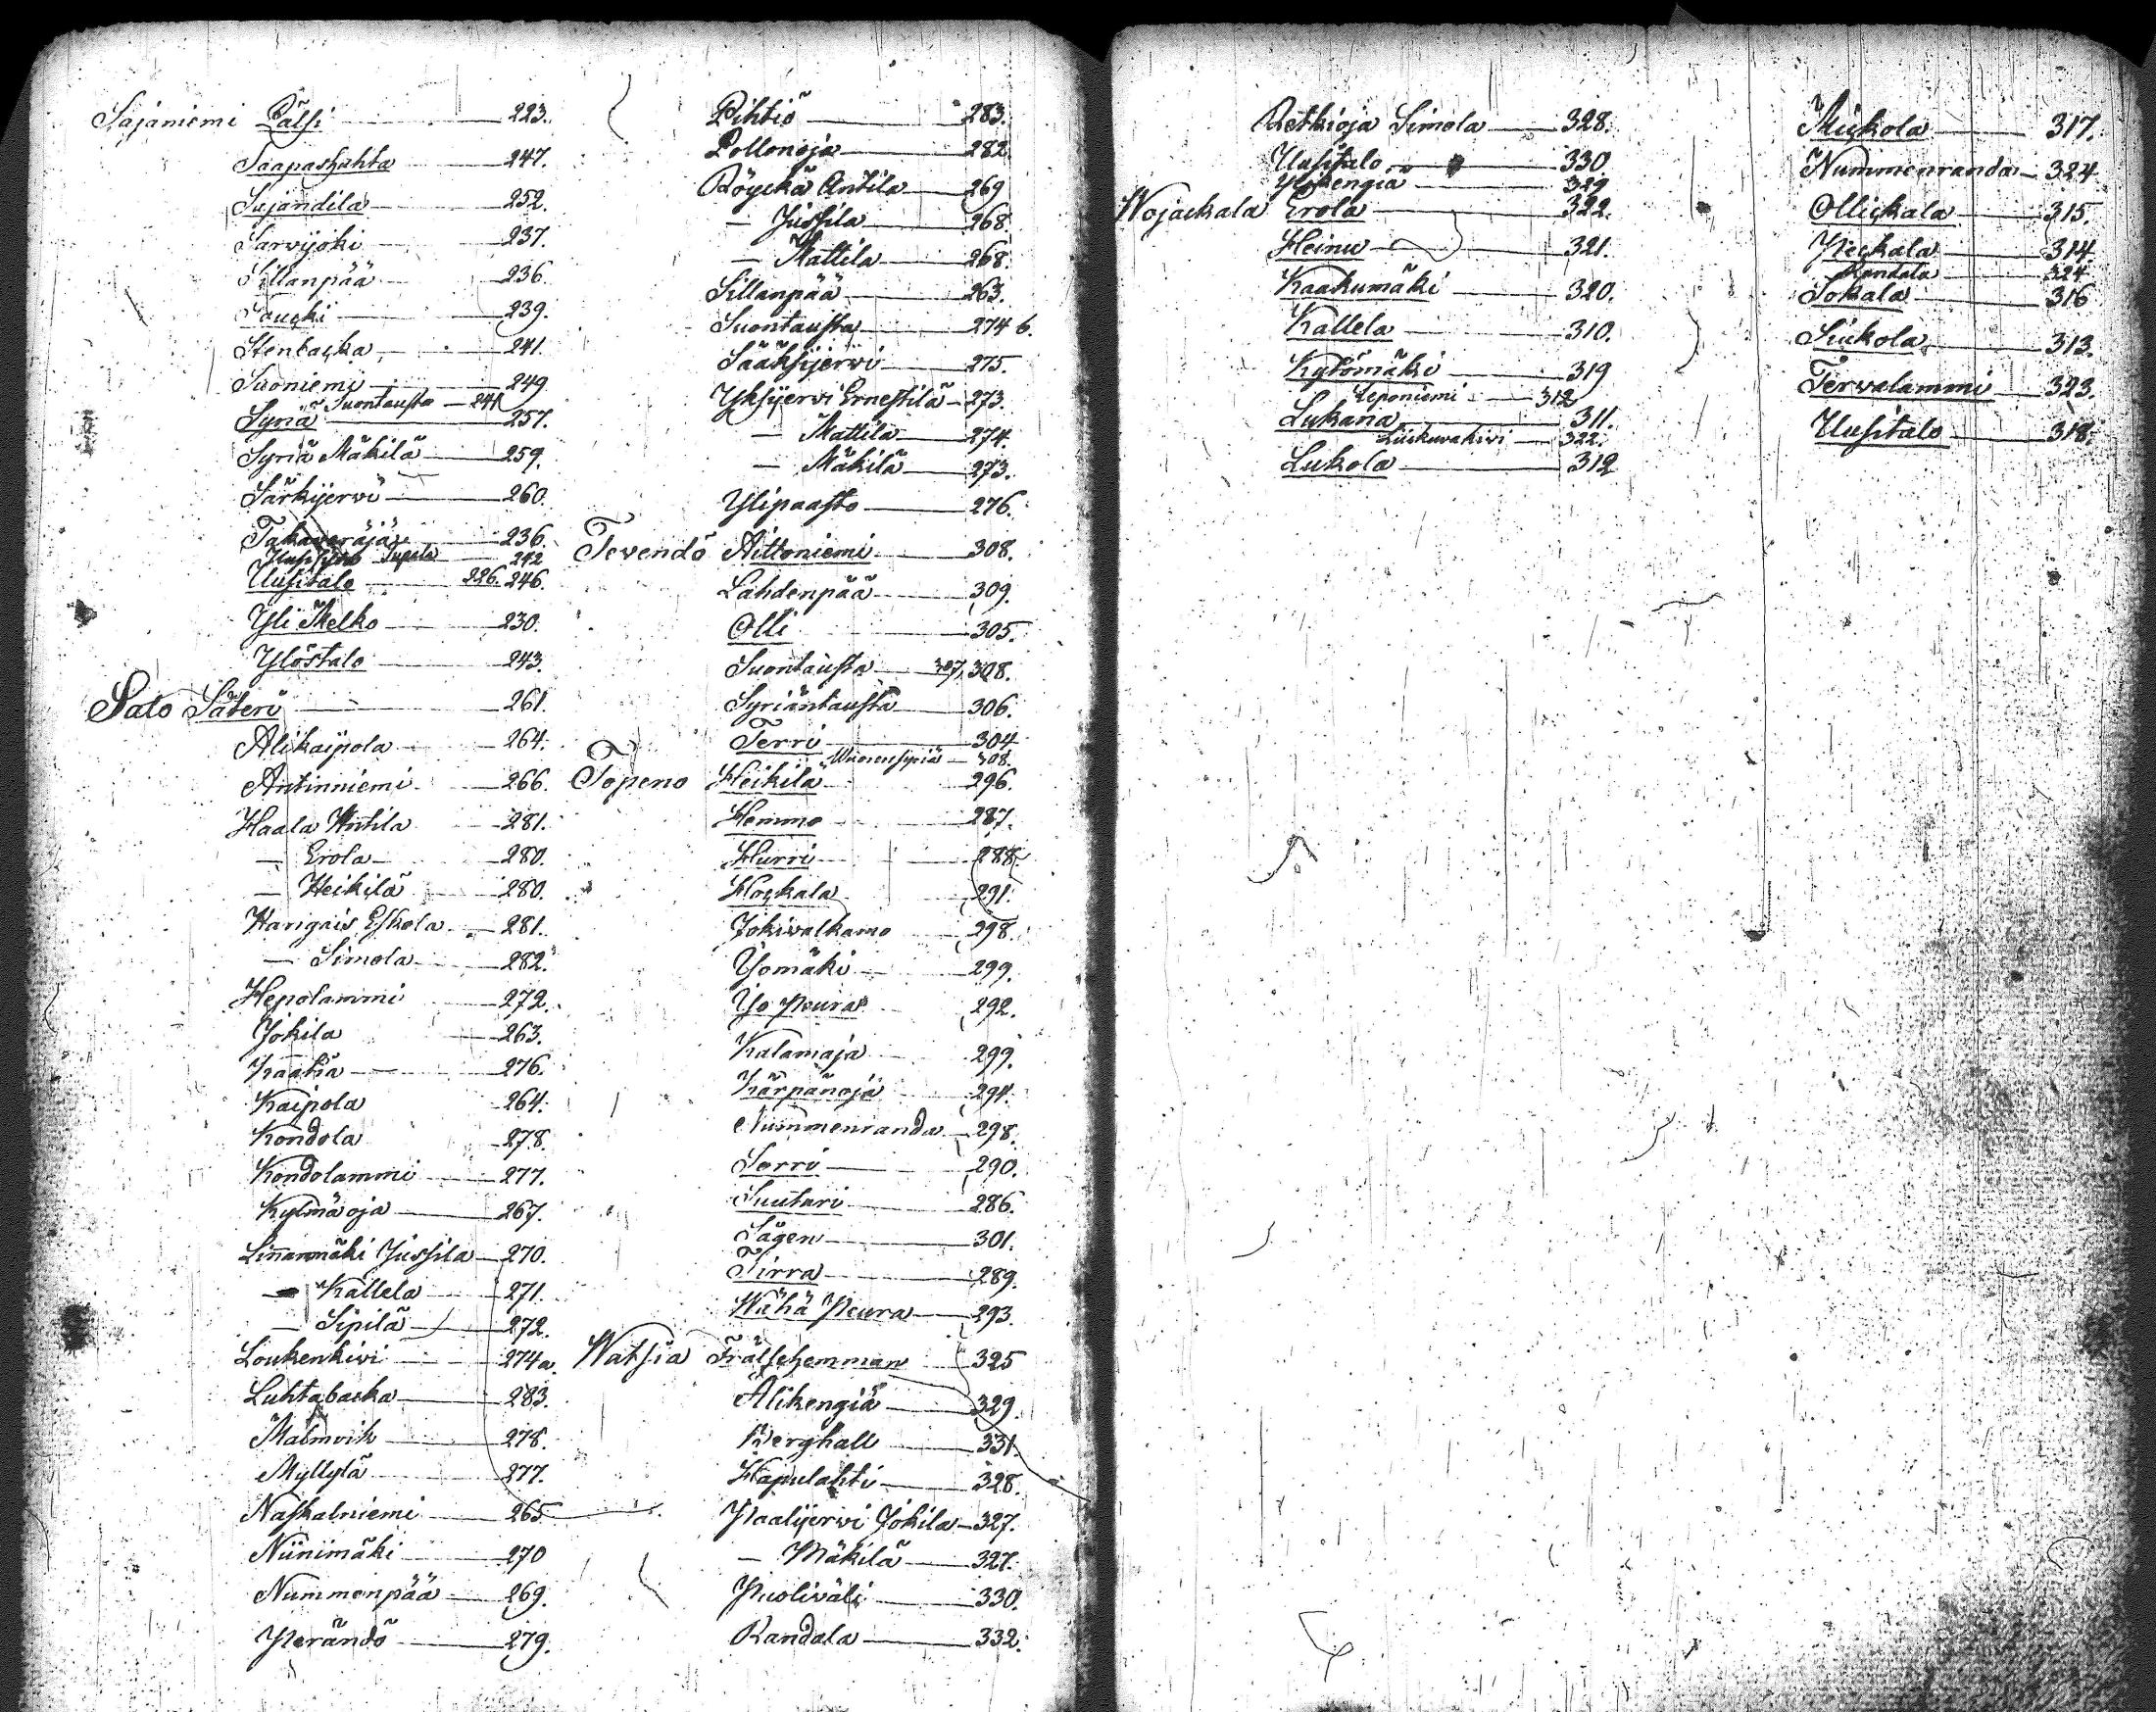 Sajaniemi Pälsi 223.
Saapaslahta 247.
Sajandila 252.
Sarvijoki 237.
Sillanpää 236.
239.
Stenbacka 241.
Suoniemi 249
Suontausta 241
Syriä 257.
Syriä Mäkilä 259.
Särkijerwi 260.
236.
242
Uusitalo 226. 246.
Yli Melko 230.
Ylöstalo 243.
Salo Säteri 261.
Alikaipola 264.
Antinniemi 266.
Haala Antila 281.
— Erola 280.
— Heikilä 280.
Kangais Eskola 281.
— Simola 282.
Hepolammi 272.
Jokila 263.
Kaatia 276.
Kaipola 264.
Kondola 278.
Kondolammi 277.
Kylmäoja 267.
Linanmäki Jussila 270.
— Kallela 271.
— Sipilä 272.
Loukenkivi 274a
Luhtabacka 283.
Malmvik 278.
Myllylä 277.
Naskalniemi 265
Niinimäki 270
Nummenpää 269.
Perändö 279.
Pihtiö 283.
Pollonoja 282.
Röyckä Antila 269
— Jussila 268.
— Mattila 268.
Sillanpää 263.
Suontausta 274 b.
Sääksijerwi 275.
Yksijerwi Ernestilä 273.
— Mattila 274.
— Mäkilä 273.
Ylipaasto 276.
Tevendö Aittoniemi 308.
Lahdenpää 309.
Olli 305.
Suontausta 307, 308.
Syriäntausta 306.
Terri 304
Wuorensyriä 308.
Topeno Heikilä 296.
Hemmo 287.
Hurri 288
Hockala 291.
Jokivalkamo 298.
Yomäki 299.
Yo Peura 292.
Kalamaja 299.
Kärpänoja 294.
Nummenranda 298.
Sorri 290.
Suutari 286.
Sågen 301.
Tirra 289.
Wähä Peura 293.
Watsia Frälsehemman 325
Alikengiä 329.
Berghall 331.
Hapulahti 328.
Paalijerwi Jokila 327.
— Mäkilä 327.
Puoliväli 330.
Randala 332.
Retkioja Simola 328.
Uusitalo 330
Ylikengiä 329
Wojackala Erola 322.
Heinu 321.
Kaakumäki 320.
Kallela 310.
Kytömäki 319
Leponiemi 312
Lukana 311.
Liikuvakivi 322.
Lukola 312
Mickola 317.
Nummenranda 324
Ollickala 315.
Peckala 314
Randala 324
Sokala 316
Siukola 313.
Tervalammi 323.
Uusitalo 318.